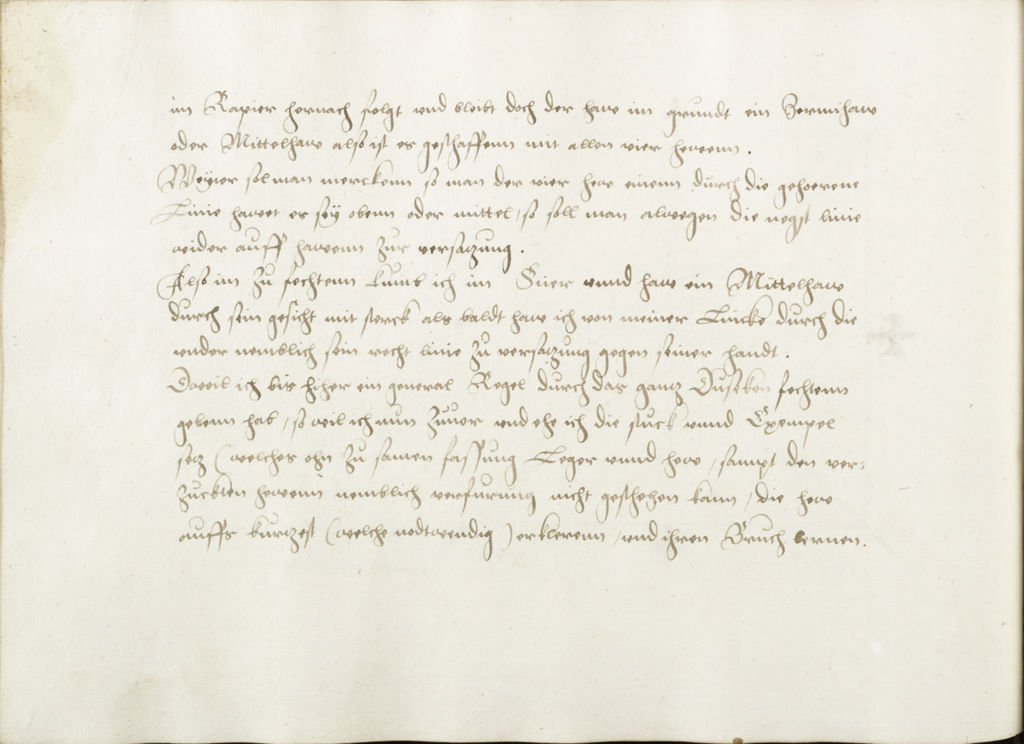 im Rapier hernach folgt vnd bleibt doch der haw im grundt ein Zwerchhaw
oder Mittelhaw also ist es geschaffenn mit allen vier hewenn.
Weÿter sol man merckenn so man der vier hew einenn durch die gehoerene
Linie hawet er seÿ obenn oder mittel, so soll man alwegen die negst linie
wider auff hawenn zur versatzung.
Also im zu fechtenn kumb ich im Stier vnnd haw ein Mittelhaw
durch sein gesicht mit sterck als baldt haw ich von meiner Lincke durch die
vnder nemblich sein recht linie zu versatzung gegen seiner handt.
Dweil ich bis hiher ein general Regel durch das gantz Dusecken fechtenn
gebenn hab, so wil ich nun zuuor vnd ehe ich die stuck vnnd Exempel
setz (welches ohn zu samen fassung Leger vnnd hew, sampt den ver-
zuckten hewenn nemblich verfurung nicht geschehen kann, die hew
auffs kurtzest (welche nodtwendig) erklerenn, vnd ihren Bruch lernen.